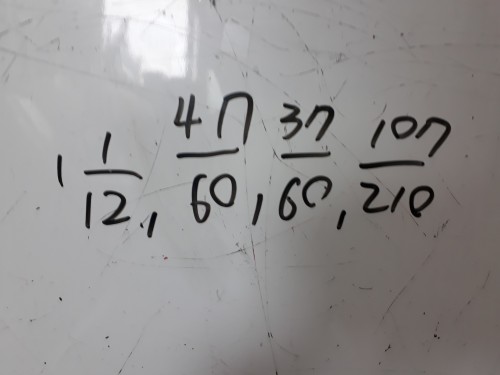 1 1/12, 47/60, 37/60, 107/210